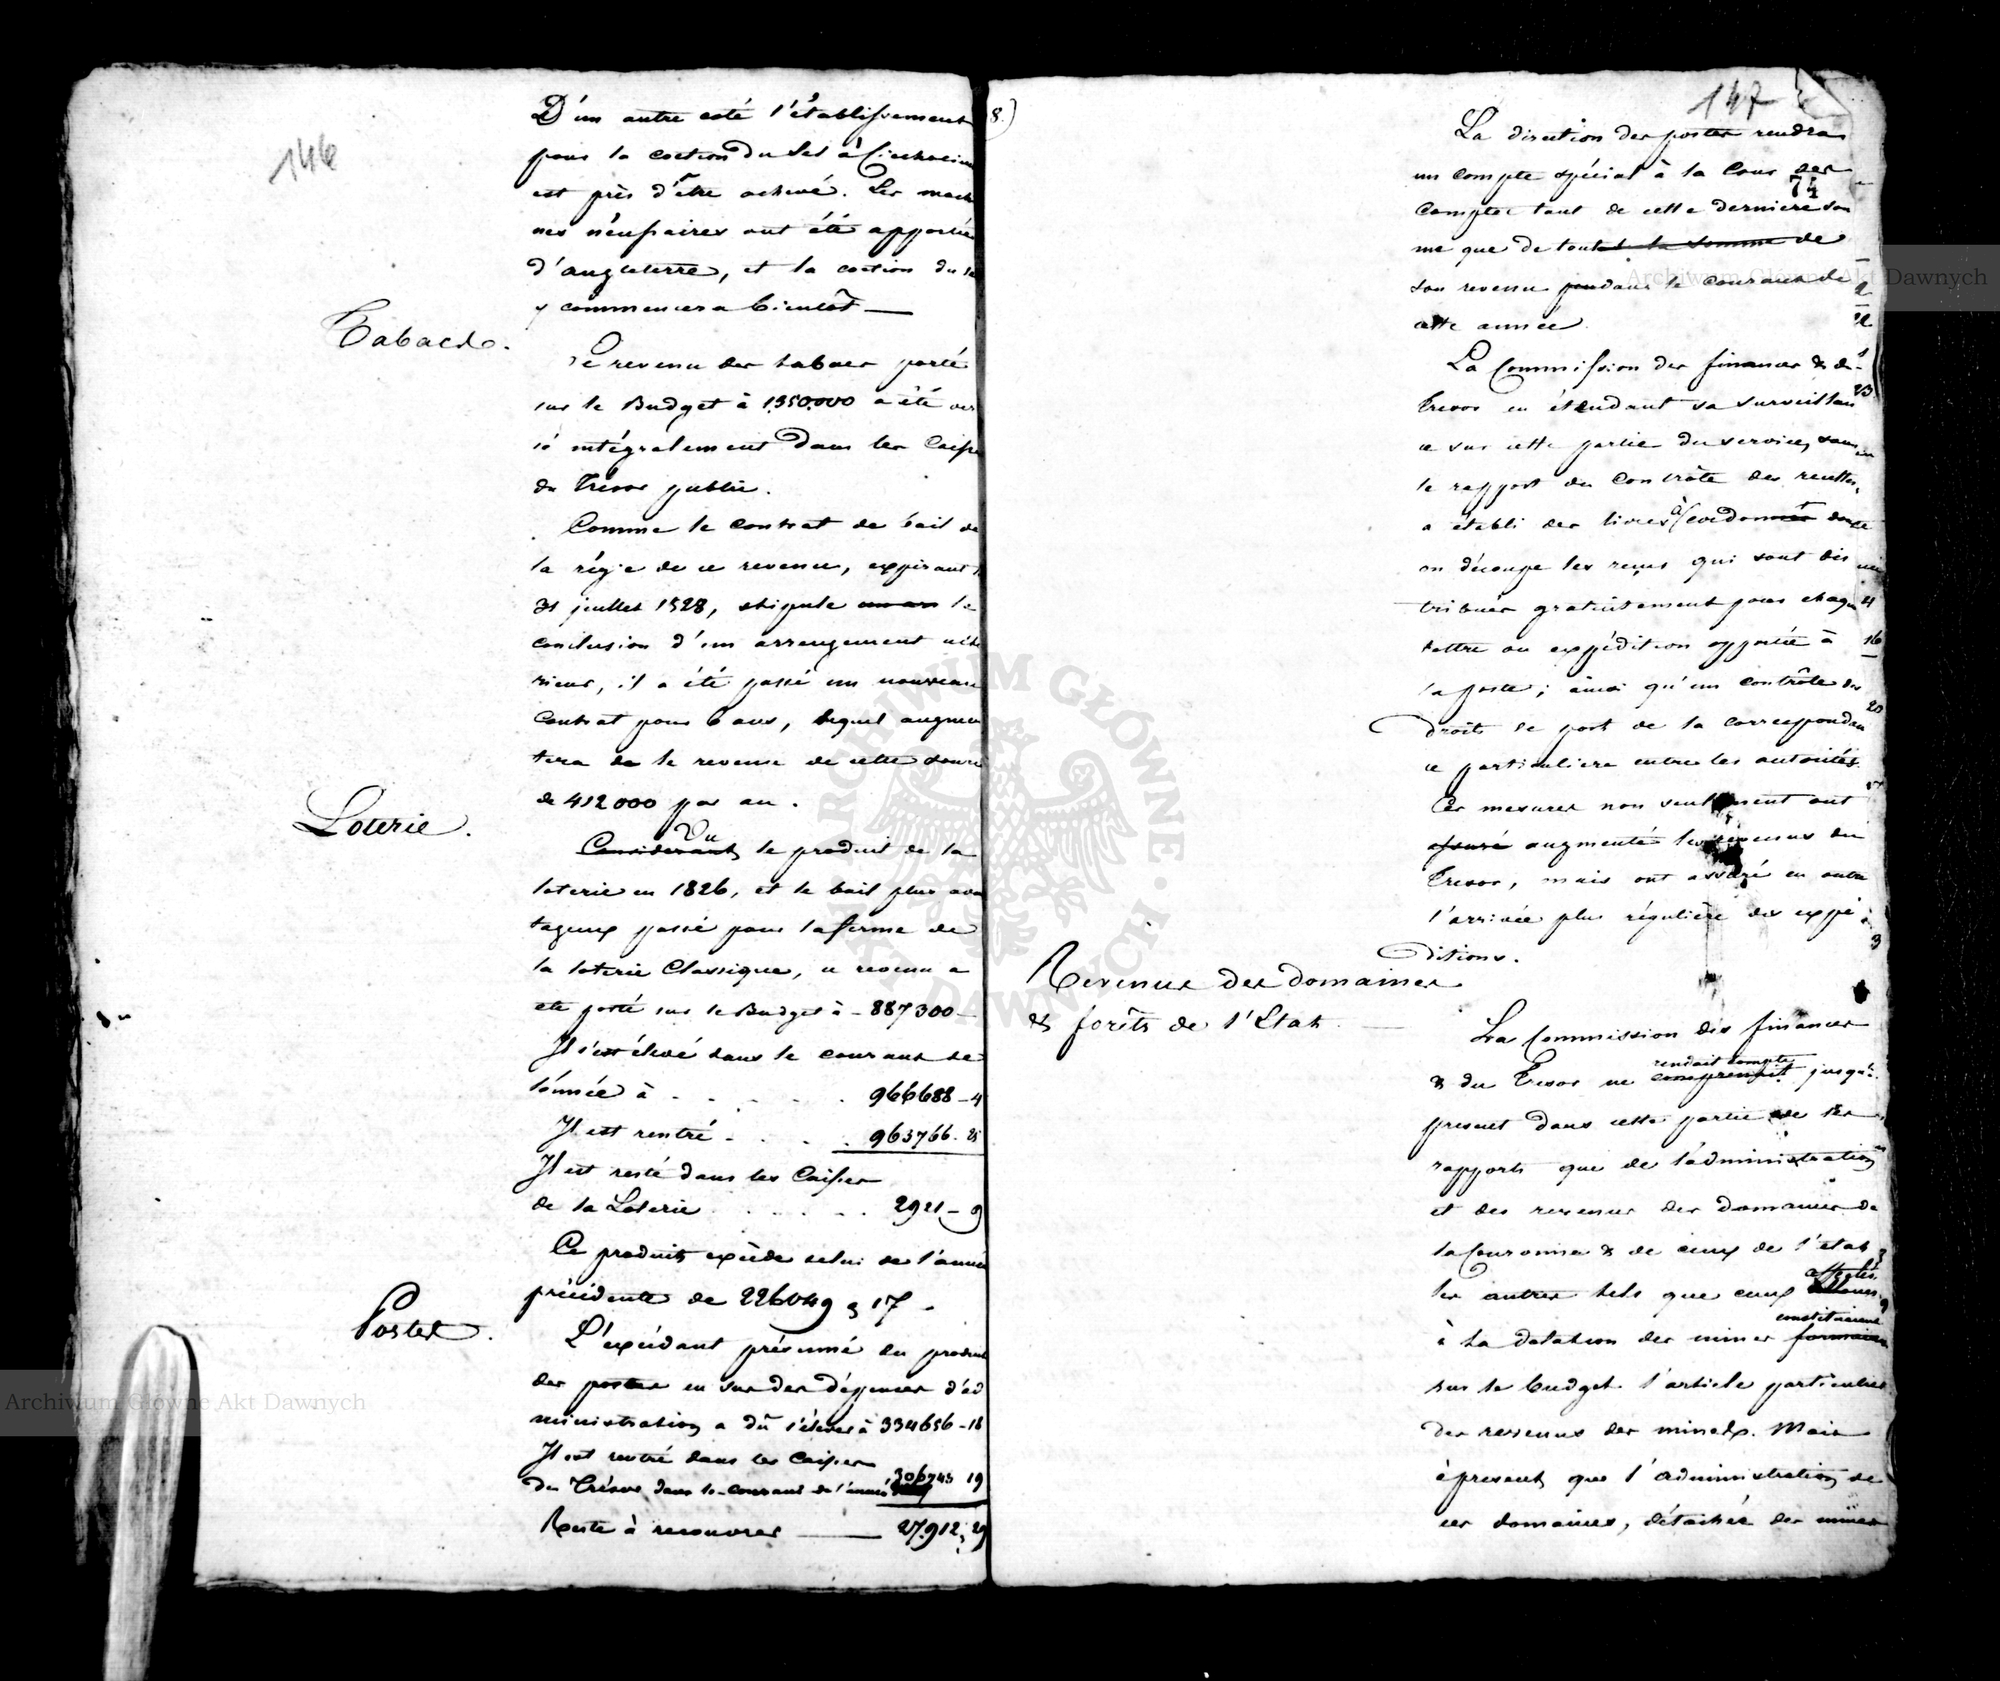 146
D'un autre coté l'établissement
pour la coction du Sel à Ciechocin
est près d'être achevé. Les machi
nes nécessaires ont été apportée
d'angleterre, et la coction du se
y commencera bientôt —
Tabacs.
Le revenu des tabacs porté
sur le Budget à 1,350,000 a été ver
sé intégralement dans les Caisse
du Trésor public.
Comme le contrat de bail de
la régie de ce revenu, expirant
31 juillet 1828, stipule la
conclusion d'un arrangement ulté
rieur, il a été passé un nouveau
Contrat pour 6 ans, lequel augmen
tera de le revenu de cette source
de 412000 par an.
Loterie.
Vu
Considérant le produit de la
loterie en 1826, et le bail plus avan
tageux passé pour la ferme de
la loterie Classique, ce revenu a
été porté sur le Budget à – 887300 –
Il s'est élevé dans le courant de
l'année à . . . . . 966688 – 4
Il est rentré . . . . 963766 . 25
Il est resté dans les Caisses
de la Loterie . . . . . 2921 – 9
Ce produit excède celui de l'année
précédente de 226049 3 17 –
Postes.
L'excédant présumé du produit
des postes en sus des dépenses d'ad
ministration a dû s'élever à 334656 – 18
Il est rentré dans les Caisses
du Trésor dans le courant de l'année 306743 19
Reste à recouvrer — 27,912, 29
8.)
147
74
La direction des postes rendra
un compte spécial à la Cour des
Comptes tant de cette derniere som
me que de toute la somme de
son revenu pendant le courant de
cette année.
La Commission des finances & du
Tresor en étendant sa surveillan
ce sur cette partie du service, sous
le rapport du contrôle des recettes,
a établi des livres à
on découpe les reçus qui sont dis
tribués gratuitement pour chaque
lettre ou expédition apportée à
la poste; ainsi qu'un contrôle des
droits de port de la correspondan
ce particuliere entre les autorités.
Ces mesures non seulement ont
assuré augmenté les revenus du
Tresor, mais ont assuré en outre
l'arrivée plus régulière des expé
ditions.
Revenus des domaines
& forêts de l'Etat. —
La Commission des finances
rendait compte
& du Tresor ne comprenait jusqu'à
present dans cette partie de ses
rapports que de l'administration
et des revenus des Domaines de
la Couronne & de ceux de l'etat
affectés
les autres tels que ceux
constituaient
à la dotation des mines formaient
sur le budget l'article particulier
des revenus des mines. Mais
àpresent que l'administration de
ces domaines, détachée des mines
Archiwum Główne Akt Dawnych
Archiwum Główne Akt Dawnych
ARCHIWUM GŁÓWNE AKT DAWNYCH